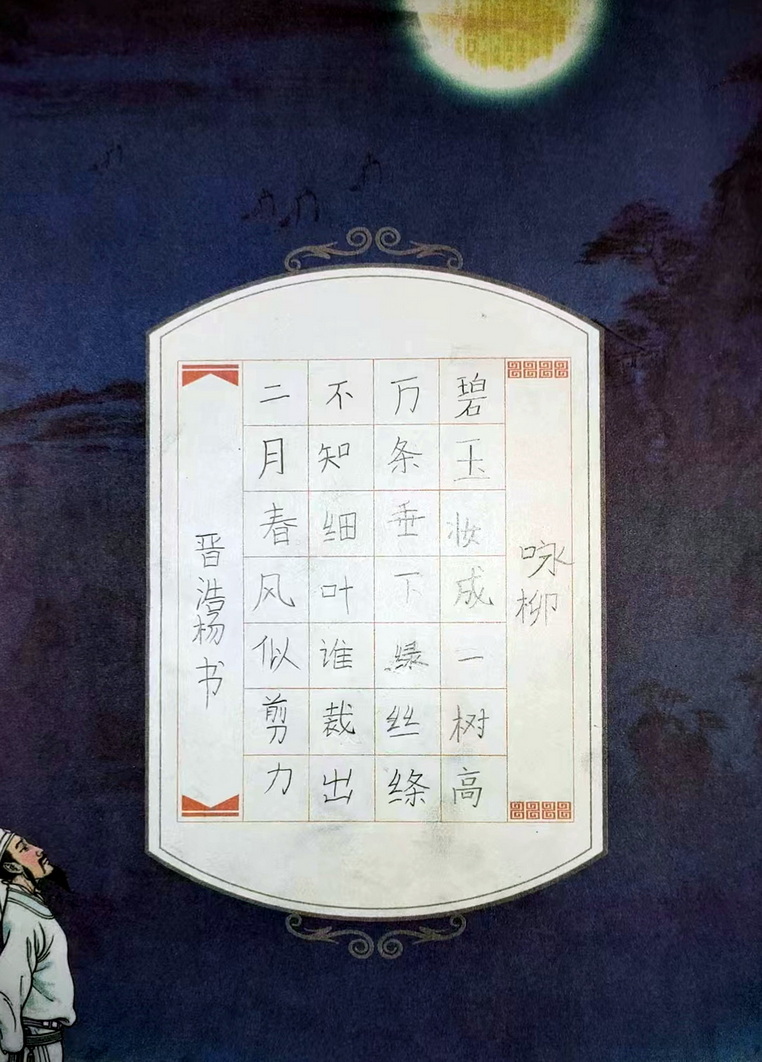 咏柳
碧玉妆成一树高
万条垂下绿丝绦
不知细叶谁裁出
二月春风似剪力
晋浩杨书